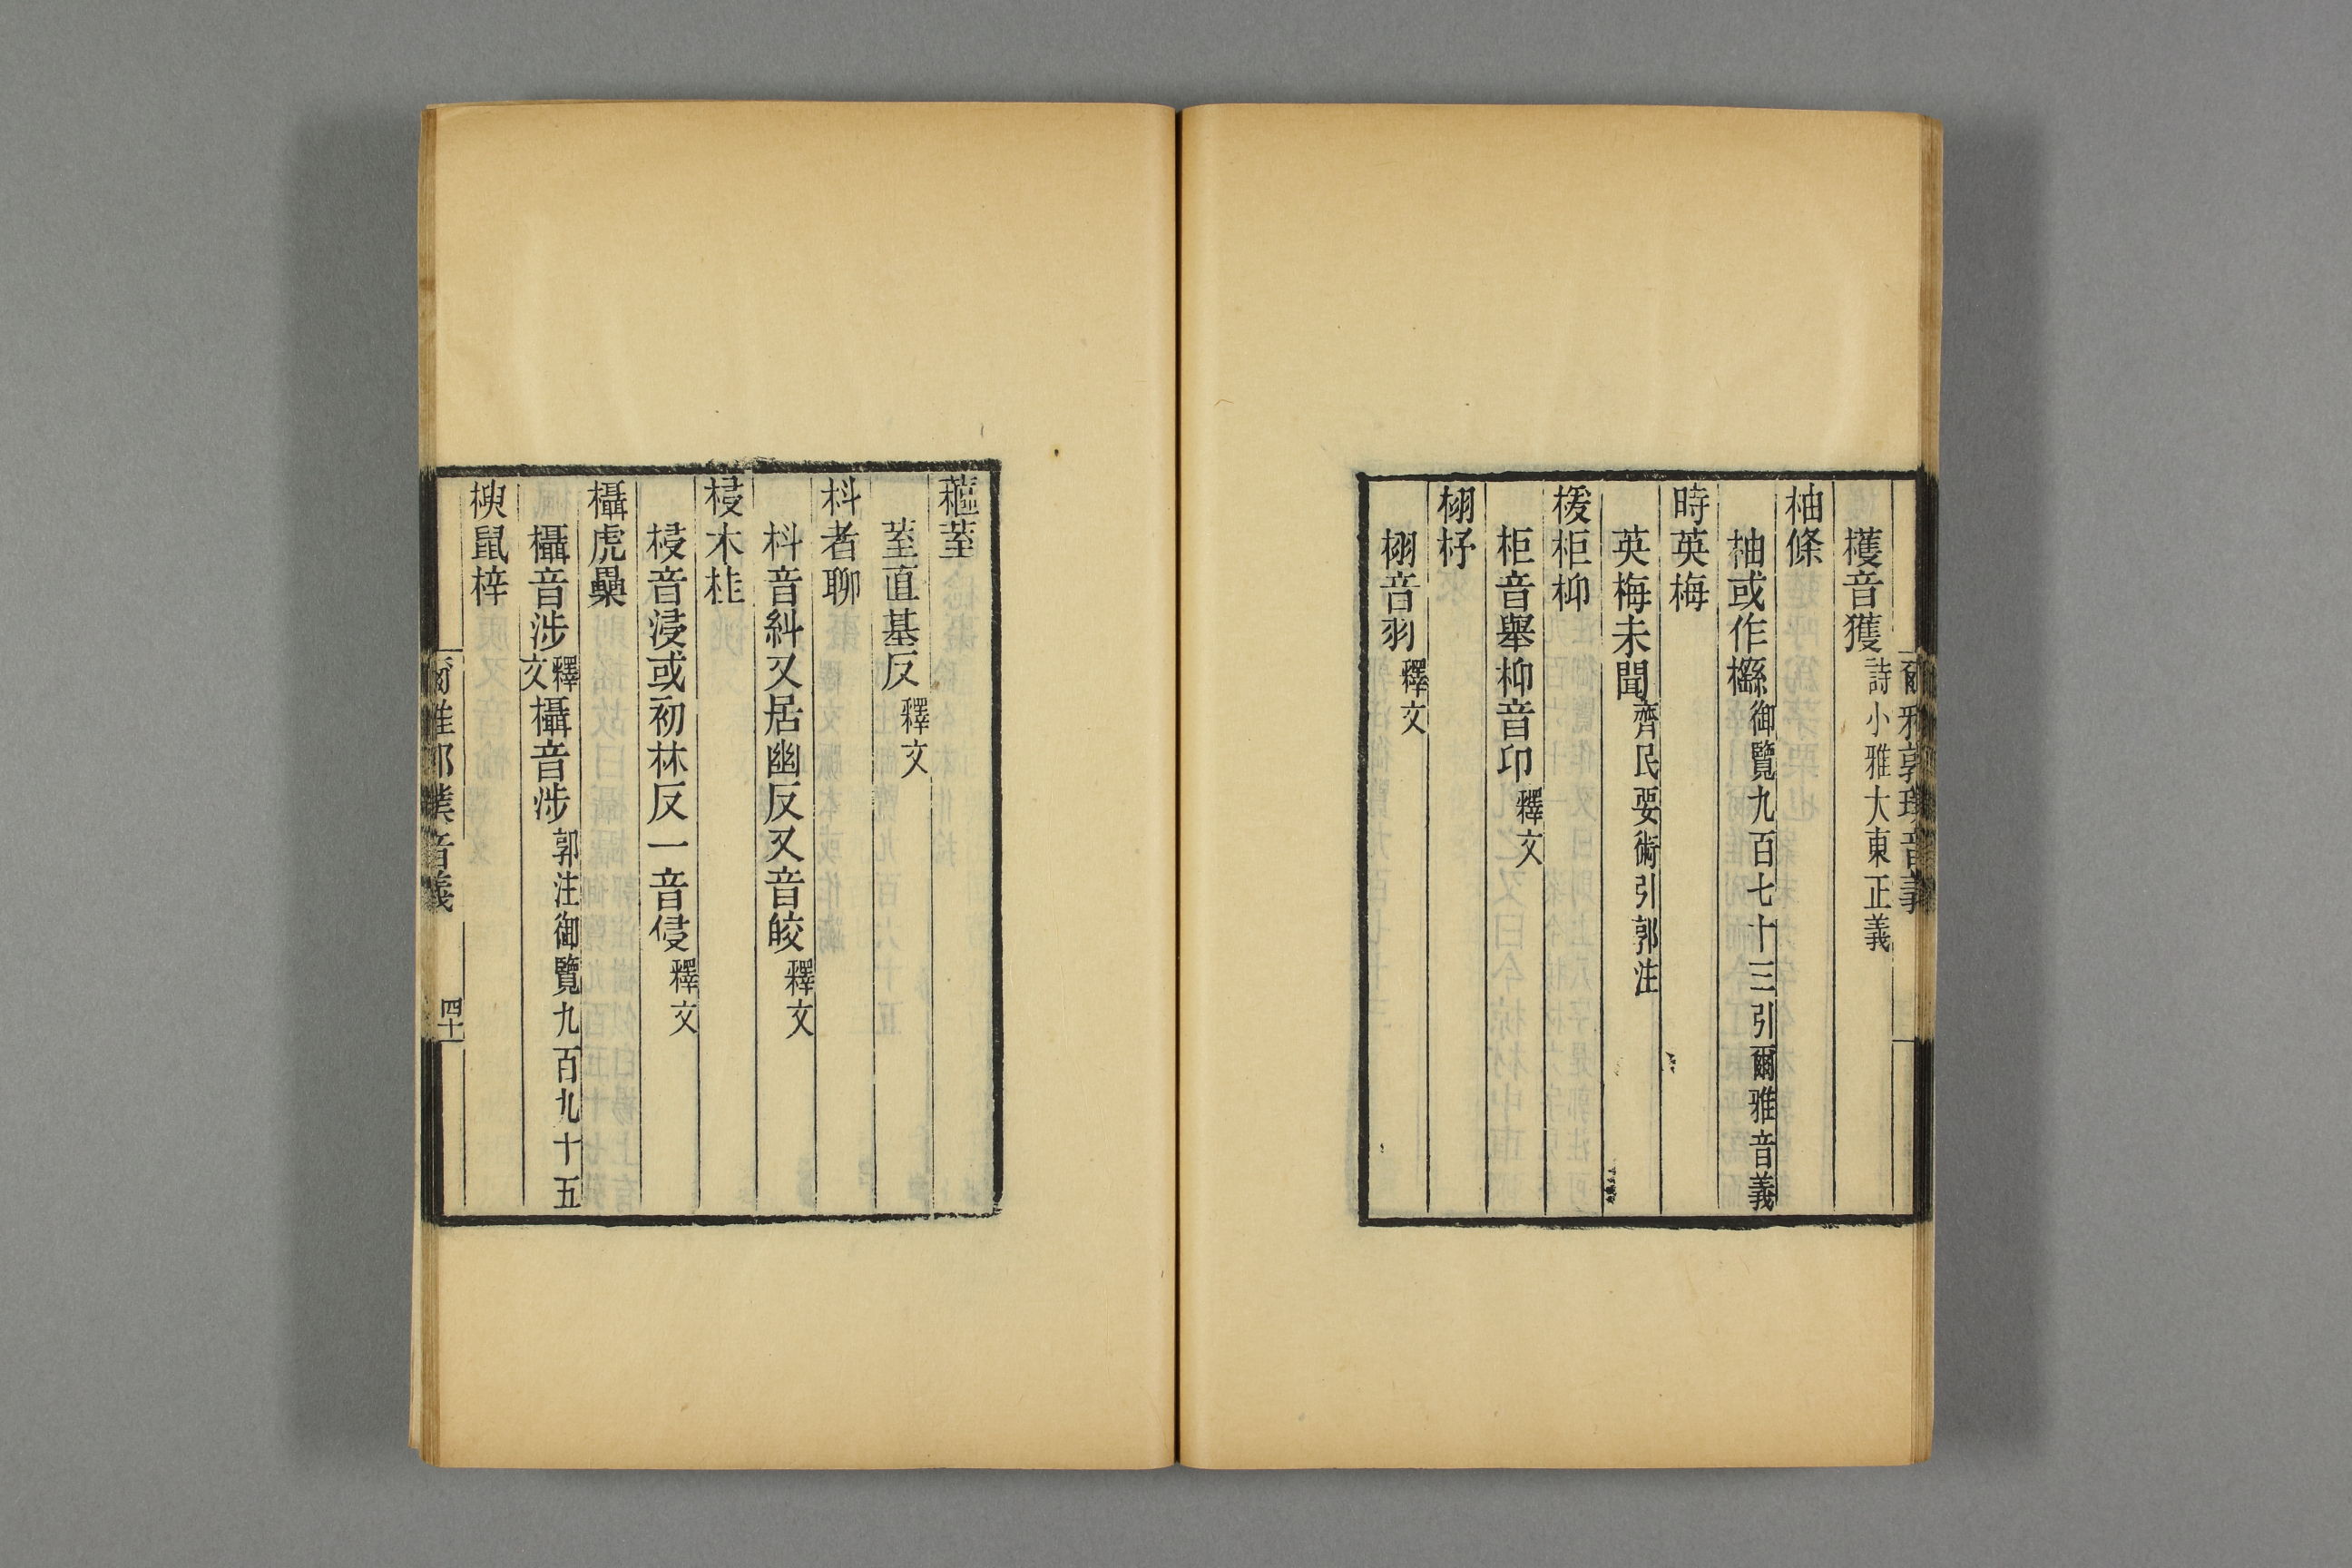 爾雅郭璞音義
檴音獲詩小雅大東正義
柚條
柚或作櫾御覽九百七十三引爾雅音義
時英梅
英梅未聞齊民要術引郭注
楥柜桺
柜音舉桺音印釋文
栩杼
栩音羽釋文
蓲荎
荎直基反釋文
朻者聊
朻音糾又居幽反又音皎釋文
梫木桂
梫音浸或初林反一音侵釋文
欇虎櫐
欇音涉釋文欇音涉郭注御覽九百九十五
楰鼠梓
爾雅郭璞音義 四十